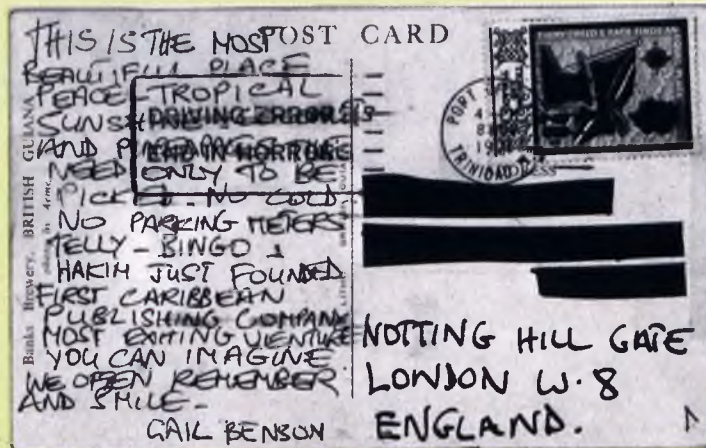 POST CARD
THIS IS THE MOST
BEAUTIFUL PLACE
PEACE TROPICAL
SUNSHINE
AND
NEED ONLY TO BE
PICKED - NO COLD
NO PARKING METERS
TELLY - BINGO &
HAKIM JUST FOUNDED
FIRST CARIBBEAN
PUBLISHING COMPANY
MOST EXITING VIENTURE
YOU CAN IMAGINE
WE OFTEN REMEMBER
AND SMILE -
GAIL BENSON
DRIVING ERRORS
END IN HORRORS
Banks Brewery, BRITISH GUIANA
PORT
TRINIDAD
NOTTING HILL GATE
LONDON W.8
ENGLAND.